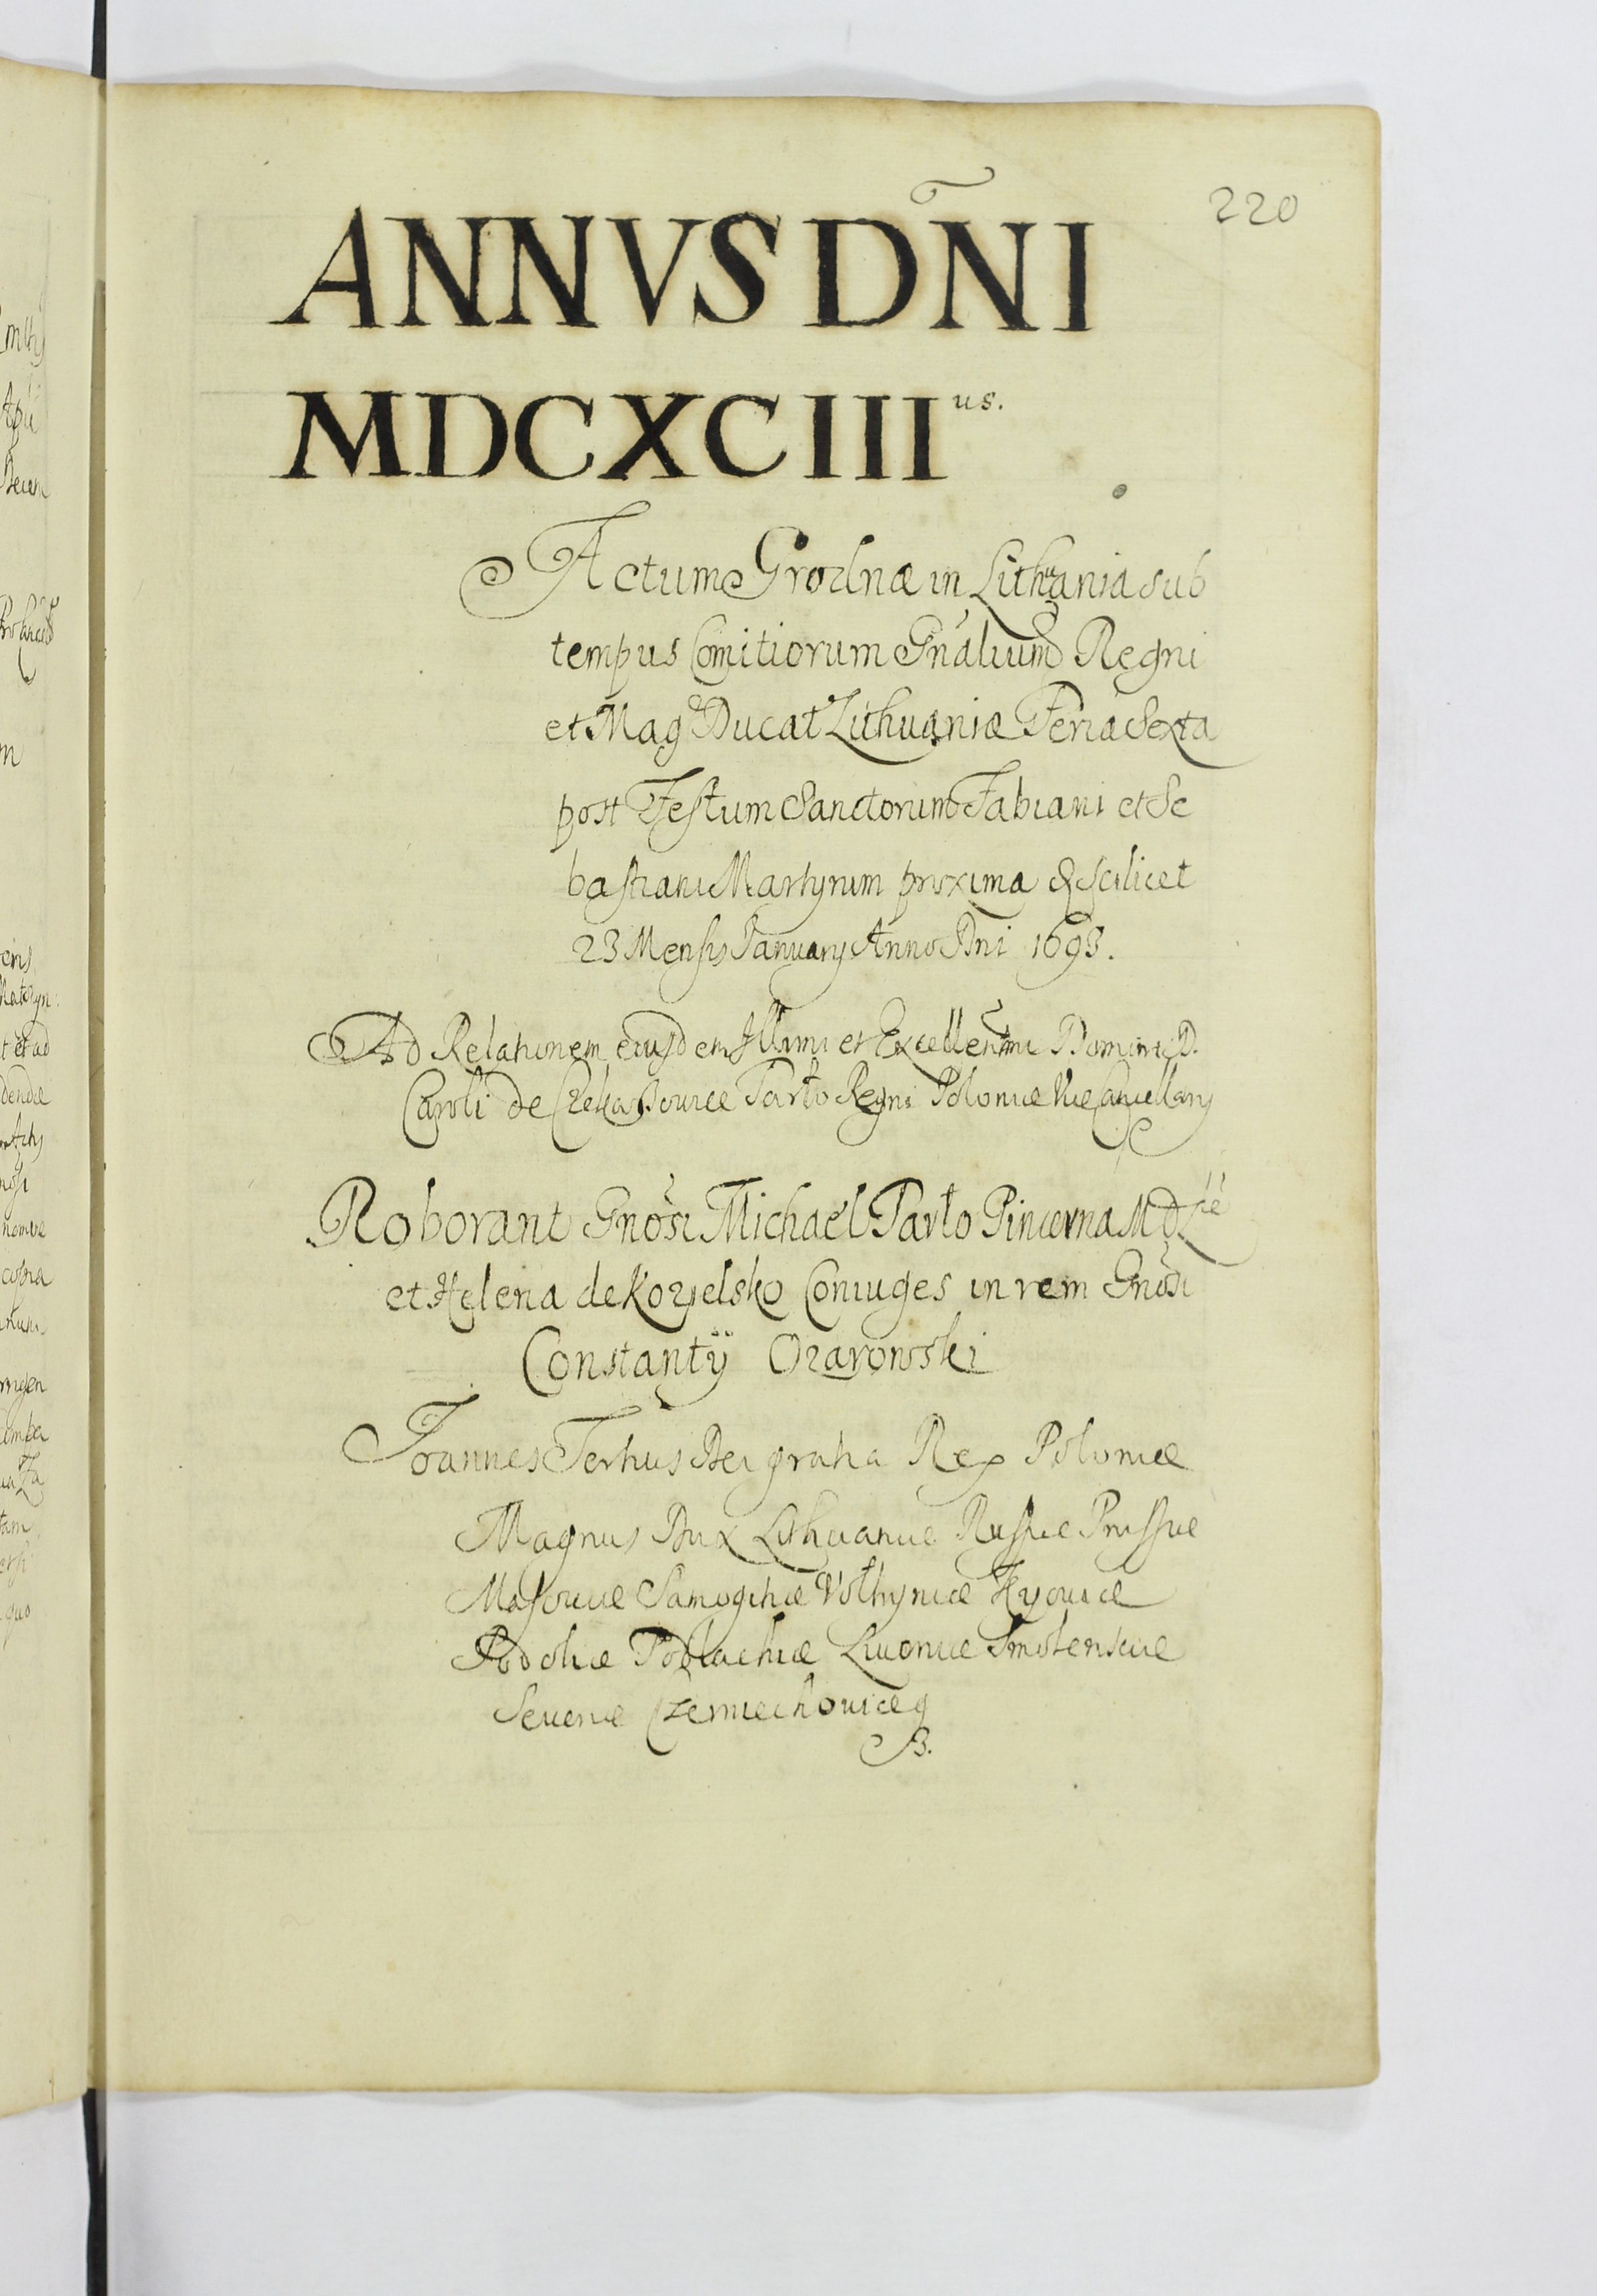 220
ANNVS DÑI
MDCXCIII us.
Actum Grodnæ in Lithuania sub
tempus Comitiorum Gñalium Regni
et Mag Ducat Lithuaniæ Feria Sexta
post Festum Sanctorum Fabiani et Se
bastiani Martyrum proxima scilicet
23 Mensis January Anno Dni 1693.
Ad Relationem eiusdem Illmi et Excellentmi Domini D.
Caroli de Tarło Regni Poloniæ Vice Cancellary
Roborant Gnosi Michael Tarło Pincerna M D L
et Helena de Kozielsko Coniuges in rem Gnosi
Constantÿ Ozarowski
Joannes Tertius Dei gratia Rex Poloniæ
Magnus Dux Lithuaniæ Russiæ Prussiæ
Masouiæ Samogitiæ Volhyniæ Kyouiæ
Podoliæ Podlachiæ Liuoniæ Smolensciæ
Seueriæ Czerniechouiæq